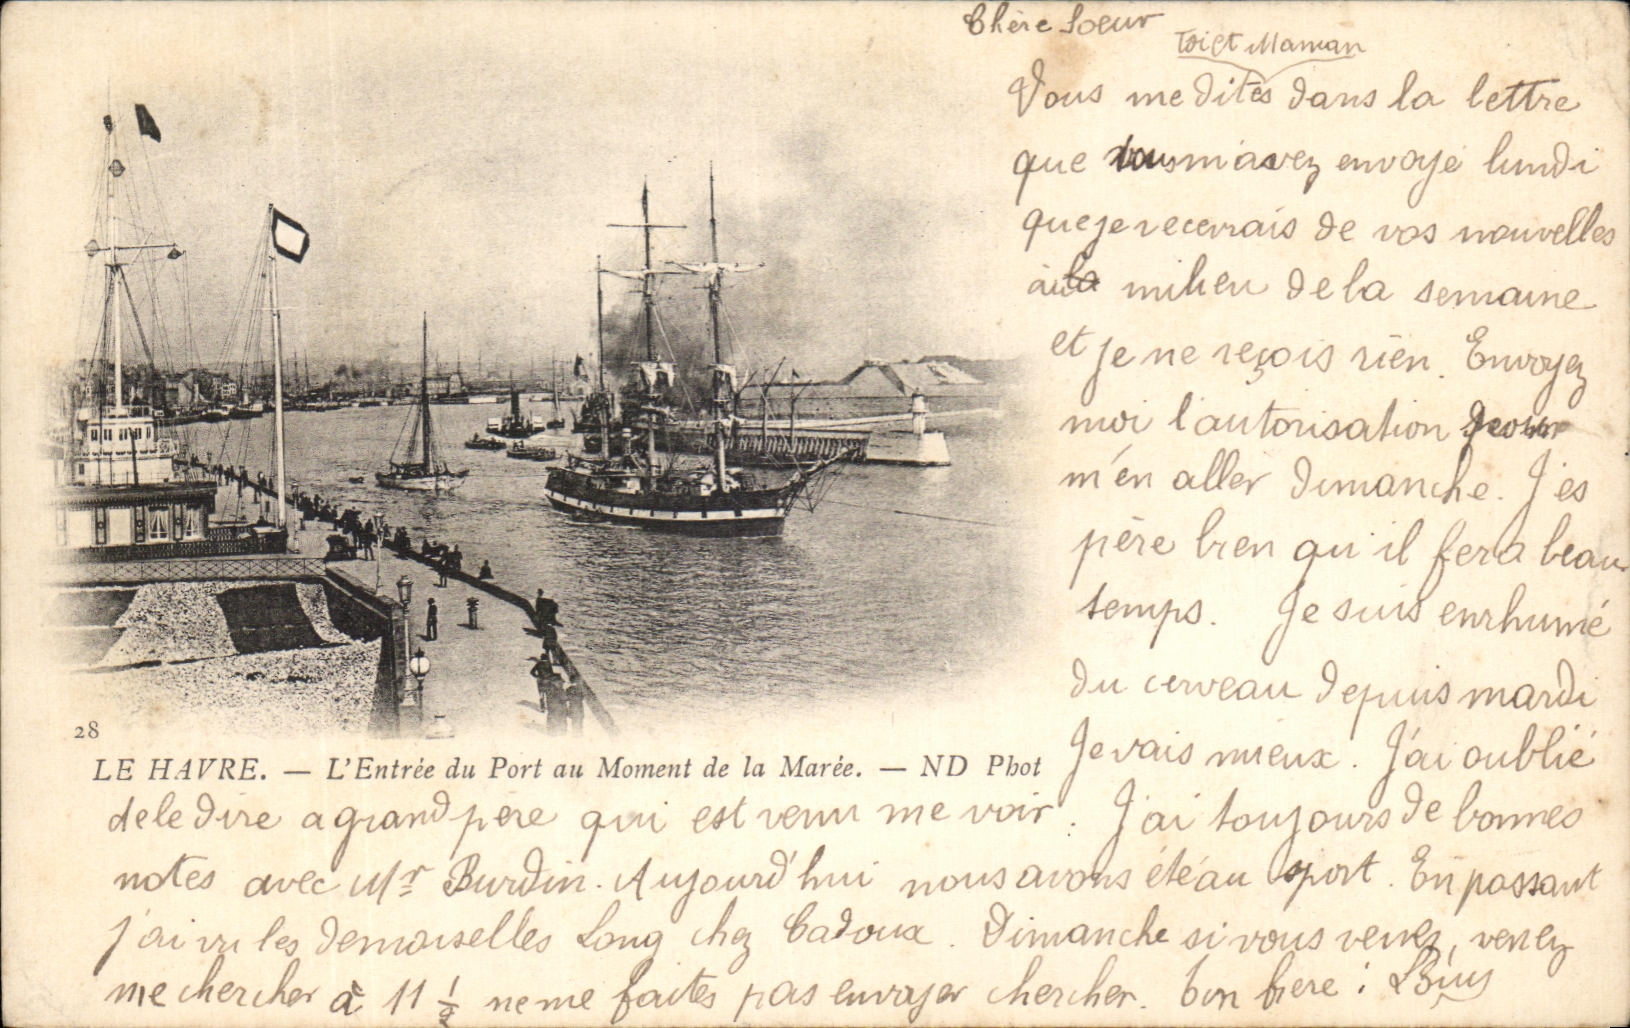 Chère Soeur
Toi et Maman
Vous me dites dans la lettre
que vous m'avez envoyé lundi
que je recevrais de vos nouvelles
au milieu de la semaine
et je ne reçois rien. Envoyez
moi l'autorisation pour
m'en aller dimanche. J'es
père bien qu'il fera beau
temps. Je suis enrhumé
du cerveau depuis mardi
Je vais mieux. J'ai oublié
28
LE HAVRE. — L'Entrée du Port au Moment de la Marée. — ND Phot
de le dire a grand père qui est venu me voir. J'ai toujours de bonnes
notes avec Mr Burdin. Aujourd'hui nous avons été au sport. En passant
j'ai vu les demoiselles Long chez Cadoux. Dimanche si vous venez, venez
me chercher à 11 ½ ne me faites pas envoyer chercher. Ton frere :